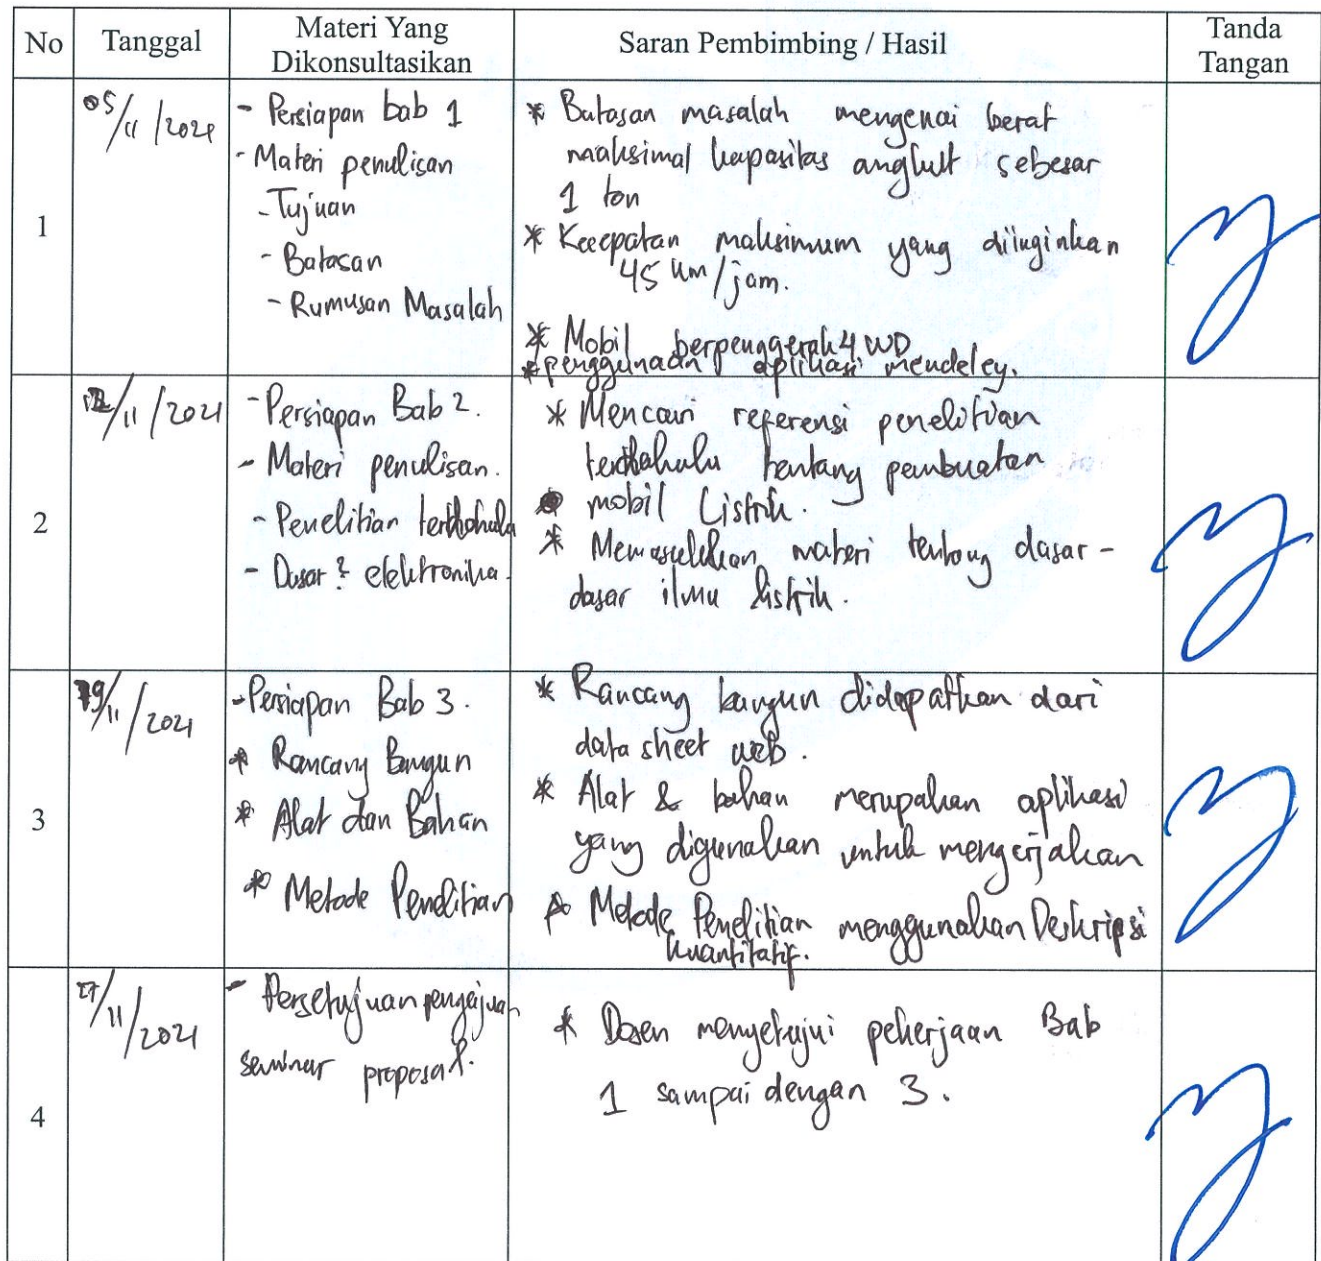 No
Tanggal
Materi Yang
Dikonsultasikan
Saran Pembimbing / Hasil
Tanda
Tangan
1
05/11/2021
- Persiapan bab 1
- Materi penulisan
- Tujuan
- Batasan
- Rumusan Masalah
* Batasan masalah mengenai berat
maksimal kapasitas angkut sebesar
1 ton
* Kecepatan maksimum yang diinginkan
45 km/jam.
* Mobil berpenggerak 4 WD
* penggunaan aplikasi mendeley.
2
12/11/2021
- Persiapan Bab 2.
- Materi penulisan.
- Penelitian terdahulu
- Dasar2 elektronika.
* Mencari referensi penelitian
terdahulu tentang pembuatan
mobil Listrik.
* Memasukkan materi tentang dasar-
dasar ilmu listrik.
3
19/11/2021
- Persiapan Bab 3.
* Rancang Bangun
* Alat dan Bahan
* Metode Penelitian
* Rancang bangun didapatkan dari
data sheet web.
* Alat & bahan merupakan aplikasi
yang digunakan untuk mengerjakan
* Metode Penelitian menggunakan Deskripsi
kuantitatif.
4
27/11/2021
- Persetujuan pengajuan
seminar proposal.
* Dosen menyetujui pekerjaan Bab
1 sampai dengan 3.